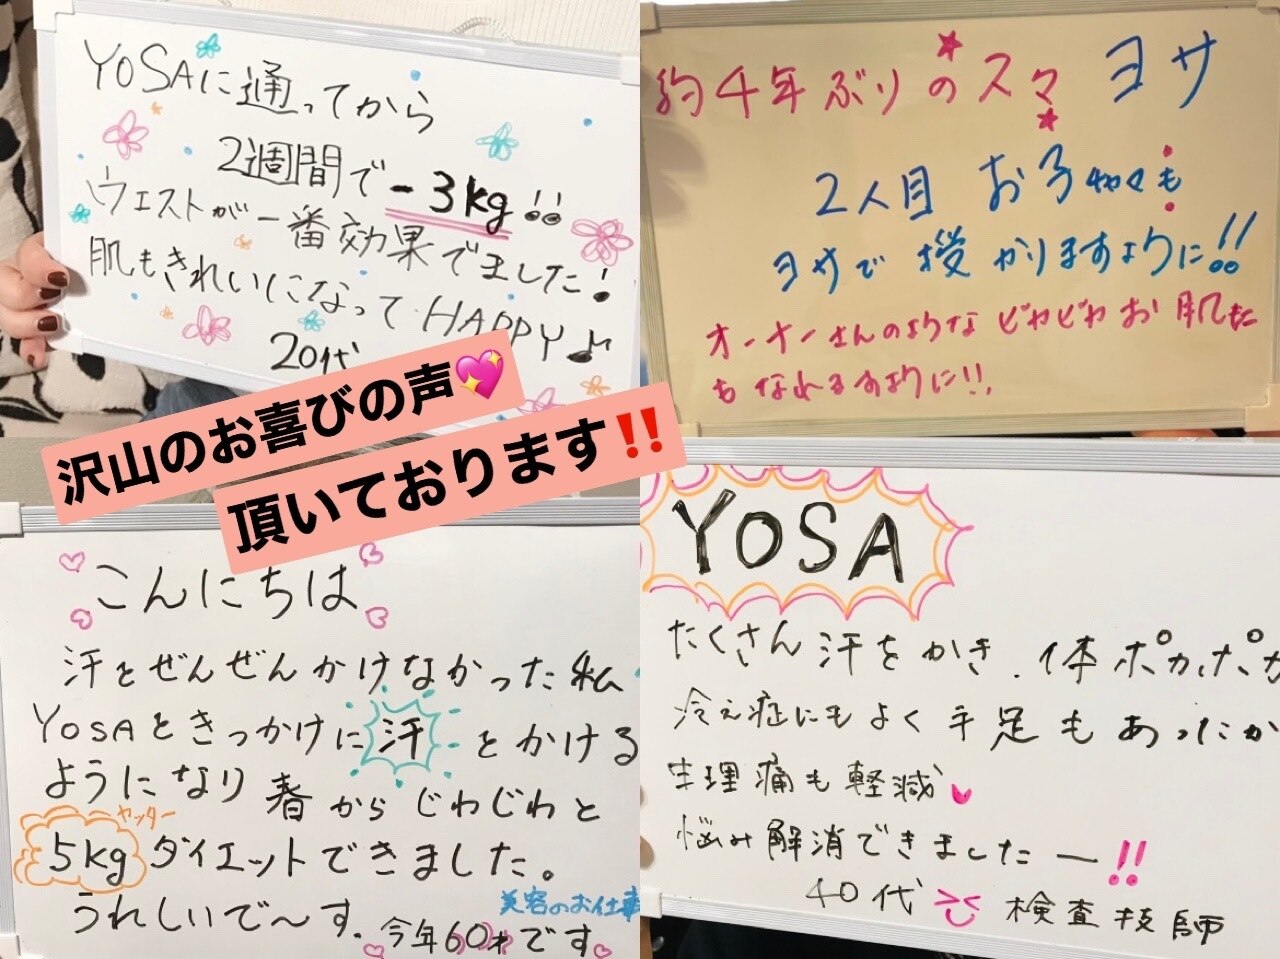 YOSAに通ってから
2週間で-3kg!!
ウエストが一番効果でました!
肌もきれいになってHAPPY♪
20代
約4年ぶりのスマ ヨサ
2人目 お子ちゃくも
ヨサで 授かりますように!!
オーナーさんのような ピカピカ お肌に
もなれますように!!
沢山のお喜びの声💖
頂いております‼️
こんにちは
汗とぜんぜんかけなかった私
YOSAときっかけに汗とかける
ようになり 春からじわじわと
ヤッター
5kgダイエットできました。
うれしいで〜す.
美容のお仕事
今年60才です
YOSA
たくさん汗をかき.体ポカポカ
冷え症にもよく手足もあったか
生理痛も軽減
悩み解消できましたー!!
40代 検査技師